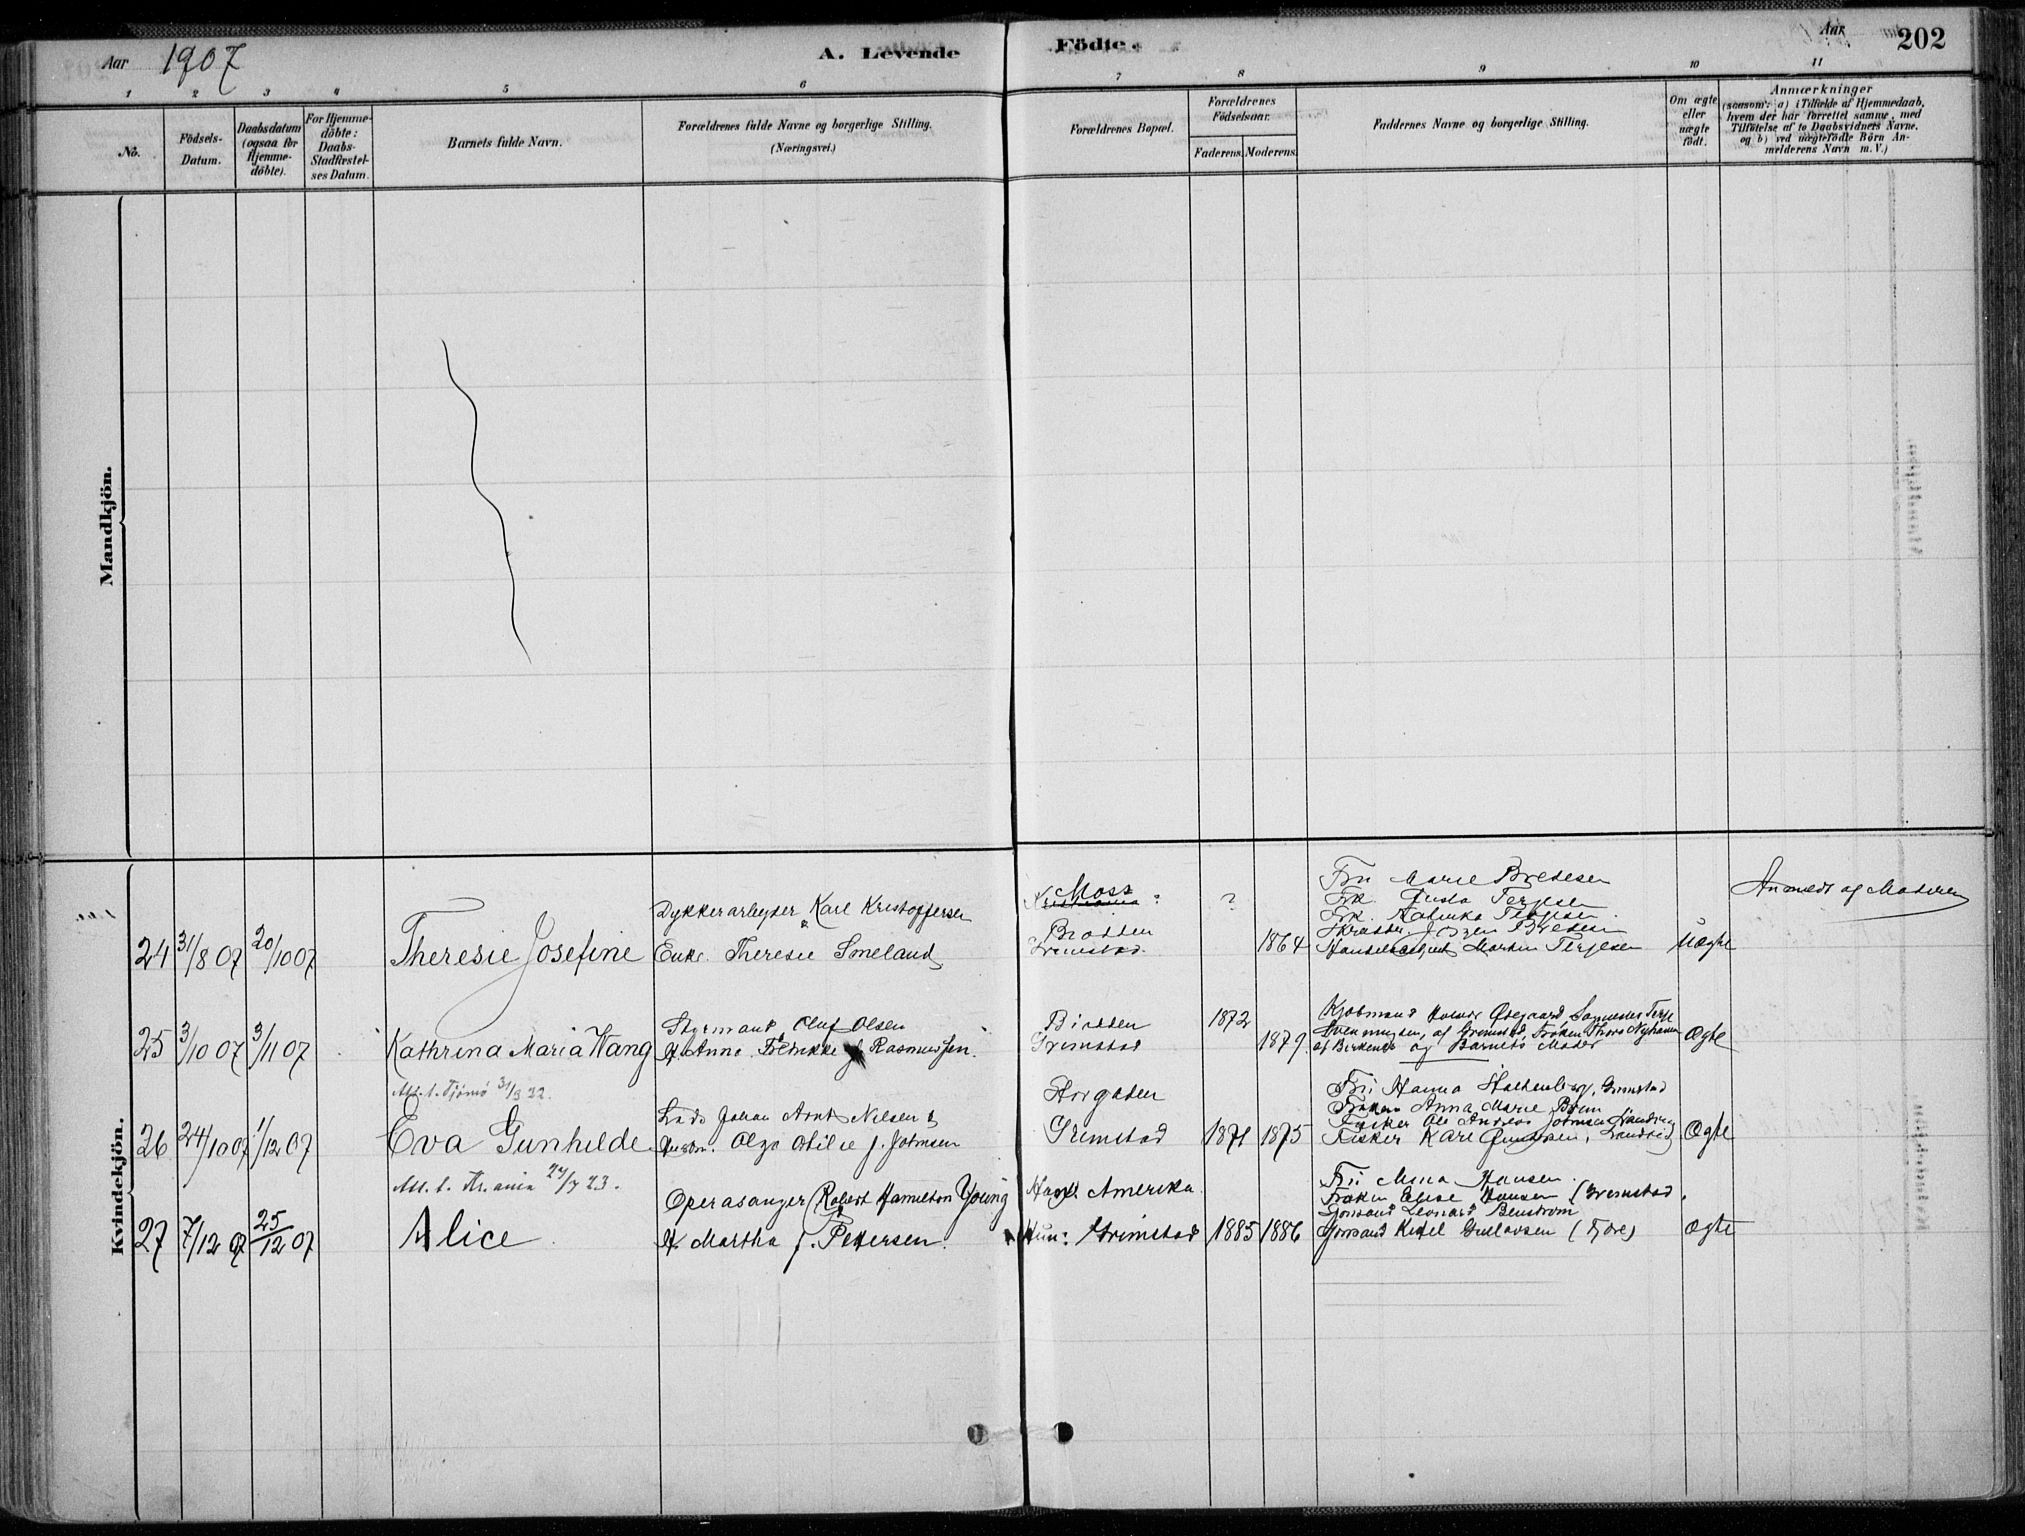 Aar 1907
A. Levende
Födte.
Aar
202
1 2 3 4 5 6 7 8 9 10 11
No.
Födsels-
Datum.
Daabsdatum
(ogsaa for
Hjemme-
döbte).
For Hjemme-
döbte:
Daabs-
Stadfæstel-
ses Datum.
Barnets fulde Navn.
Forældrenes fulde Navne og borgerlige Stilling.
(Næringsvei.)
Forældrenes Bopæl.
Forældrenes
Födselsaar.
Faderens. Moderens.
Faddernes Navne og borgerlige Stilling.
Om ægte
eller
uægte
födt.
Anmærkninger
(saasom: a) i Tilfælde af Hjemmedaab,
hvem der har forrettet samme, med
Tilföielse af to Daabsvidners Navne,
og b) ved uægtefödte Börn An-
melderens Navn m. V.)
Mandkjön.
Kvindekjön.
24 31/8 07 20/10 07
Theresie Josefine
Dykkerarbeyder Karl Kristoffersen
&
Enke Theresie Smeland
Moss
Kristiania ?
Bratten
Grimstad.
? 1864
Fru Marie Bredesen
Frk. Gusta Terjesen
Frk. Katinka Terjesen.
Martin Terjesen
Uægte
Anmeldt af Moderen
25 3/10 07 3/11 07
Kathrina Maria Wang
Styrmand Oluf Olsen
H. Anne Fredrikke f. Rasmussen.
Bratten
Grimstad
1872 1879.
Kjøbmand Ødegaard
af Grimstad, Frøken Thora
af Birkenes og Barnets Moder
Ægte
26 24/10 07 1/12 07
Att. t. Tjömö 31/3 22.
Eva Gunhilde
Lods Johan Arnt Nilsen &
Olga Otilie f. Johnsen
Storgaden
Grimstad
1871 1875
Fru Hanna Stoltenberg, Grimstad
Frøken Anna Marie Brun
Fisker Ole Andreas Johnsen
Fisker Karl
Ægte
27 7/12 07 25/12 07
Att. t. Kr.ania 24/7 23.
Alice
Operasanger Robert Hamilton Young
H. Martha f. Pettersen.
Amerika.
Hun: Grimstad
1885 1886
Fru Mina Hansen.
Frøken Elise Hansen (Grimstad.
Leonard Benstrom
Ketil Gustavsen (Fjære)
Ægte